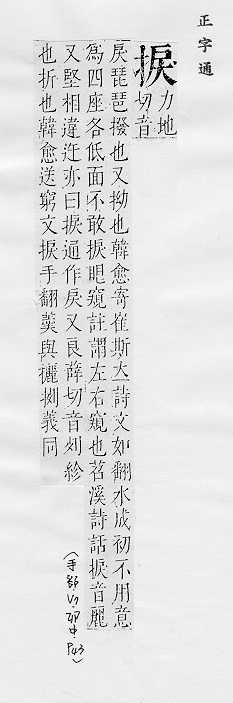 正字通
捩
力地
切音
戾琵琶撥也又拗也韓愈寄崔斯立詩文如翻水成初不用意
爲四座各低面不敢捩眼窺註謂左右窺也苕溪詩話捩音麗
又堅相違迕亦曰捩通作戾又良薛切音列紾
也折也韓愈送窮文捩手翻羹與攦挒義同
(手部 卯中 P43)